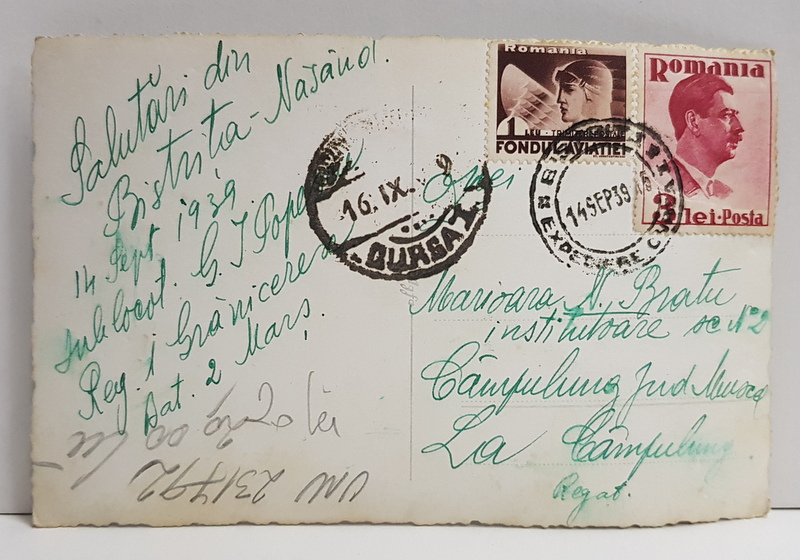 Salutări din
Bistrița-Năsăud.
14 Sept. 1939
Sublocot. G. I. Pope
Reg. 1 Grăniceresc
Bat. 2 Marș.
VNV 231792
16. IX. 9
Romania
1 LEU
FONDUL AVIAȚIEI
Romania
3 lei·Posta
14 SEP 39
EXPEDIERE
Marioara N. Bratu
institutoare sc N° 2
Câmpulung Jud Muscel
La Câmpulung
Regat.